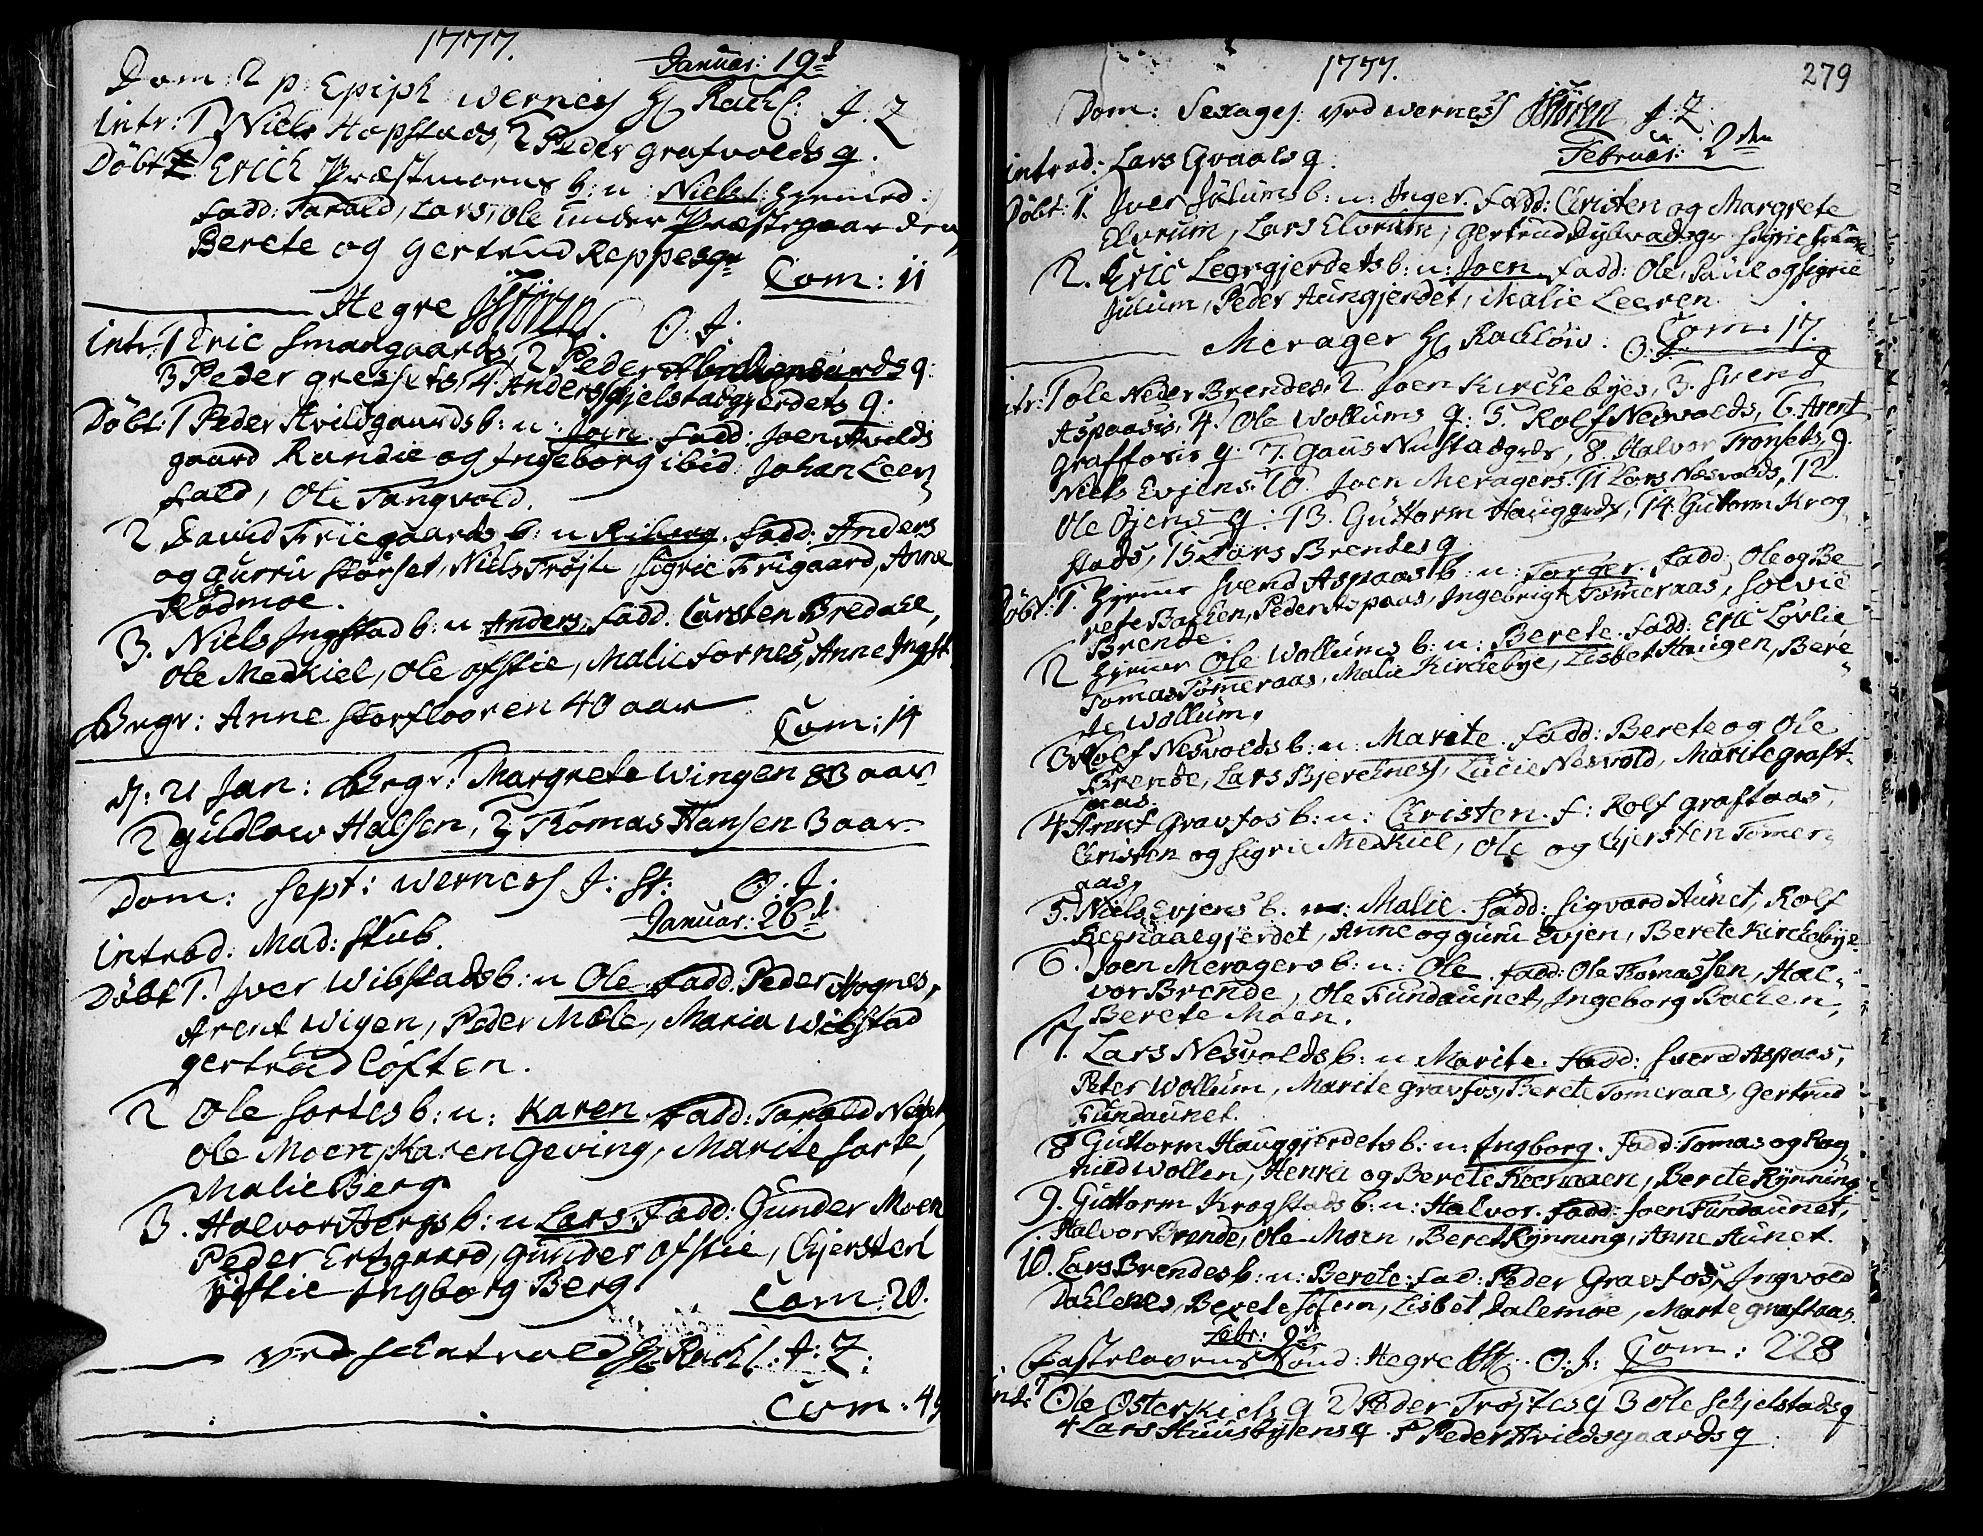 1777.
Januar: 19d
Dom: 2 p: Epiph wernes H Rachl: J: Z
intr: 1 Niels Hopstads, 2 Peder Grafvolds q.
Døbt 1 Erich Præstmoens b: u: Niels /: hjemed :/
fadd: Tarald, Lars, Ole under Præstegaarden,
Berete og Gertrud Reppesgr
Com: 11
Hegre Støren. O: J:
intr: 1 Eric Smaagaards, 2 Peder
3 Peder gresets 4. Anders Skjelstadgjerdets q.
Døbt: 1 Peder Hvildgaards b: u: Joen fadd: Joen Hvilds
gaard Randie og Ingeborg ibid: Johan Leer
fald, Ole Tangvold.
2 David Friegaards b: u fadd: Anders
og Gurru Størset, Niels Trøjte, Sigric Frigaard, Anne
Rødmoe.
3. Niels Ingstad b: u Anders, fadd. Carsten Bredahl,
Ole Medkiel, Ole ofstie, Malie fornes, Anne Ingst:
Begr: Anne Storflooren 40 aar
Com: 14
d: 21 Jan: Begr: 1 Margrete Wingen 83 aar
2 Gudlow Halsen, 3 Thomas Hansen 3 aar
Dom: Sept: wernes J: St: O: J:
Januar: 26d
introd: Mad: Stub.
Døbt 1. Iver Wibstads b: u Ole fadd: Peder Hognes,
Arent Wigen, Peder Mæle, Maria Wibstad
gertrud Løften.
2 Ole Sortes b: u: Karen fadd: Tarald
Ole Moen, Karen Geving, Marite Sorte,
Malie Berg
3. Halvor Bergs b: u Lars. fadd: Gunder Moen
Peder Ertzgaard, Gunder Ofstie, Kjersten
Ofstie Ingborg Berg
Com: 20.
ved H Rachl: J: Z:
Com: 49
1777.
279
Dom: Sexages: ved wernes Støren J: Z:
Februar: 2den
introd: Lars Qvaals q.
Døbt: 1. Iver Julums b: u: Inger. fadd: Christen og Margrete
Elvrum, Lars Elvrum, Gertrud
2. Eric Leergjerdets b: u: Joen fadd: Ole, Paul og Sigrie
Julum, Peder Aungjerdet, Malie Leeren.
Merager H Rachløw: O: J. Com: 17.
intr: 1 Ole Neder Brendes, 2 Joen Kirchebyes, 3. Svend
Aspaasis, 4. Ole Wollums q: 5. Rolf Nesvolds, 6. Arent
Graffosis q. 7. Gaus Nustadgrdz, 8. Halvor Tronsets, 9.
Niels Evjens 10. Joen Meragers. 11 Lars Nesvolds, 12.
Ole Øjens q: 13. Guttorm Hauggrdz, 14 Guttorm Krog
stads, 15 Lars Brendes q.
Døbt: 1. Hjemer Svend Aspaas b: u: Torger. fadd: Ole og Be
rete Bachen, Peder Aspaas, Ingebrigt Tømeraas, Solvie
Brende.
2 Hjemer Ole Wollums b: u: Berete. fadd: Eric Løvlie
Tomas Tømeraas, Malie Kirchebye, Lisbet Haugen, Bere
te Wollum.
3 Rolf Nesvolds b: u: Marite. fadd: Berete og Ole
Brende, Lars Bjerchnes, Lucie Nesvold, Marite graft-
aas.
4 Arent Gravfos b: u: Christen. f: Rolf Graftaas,
Christen og Sigrie Medkiel, Ole og Kjersten Tomer
aas,
5. Niels Evjens b. u: Malie. fadd: Sigvard Aunet, Rolf
Reendalgjerdet, Anne og Guru Evjen, Berete Kirchebye
6. Joen Meragers b: u: Ole. fadd: Ole Thomassen, Hal-
vor Brende, Ole Fundaunet, Ingeborg Bachen,
Berete Moen.
7. Lars Nesvolds b: u Marite. fadd: Svend Aspaas,
Peter Wollum, Marite Gravfos, Berete Tomeraas, Gertrud
Fundaunet.
8 Guttorm Hauggjerdets b: u: Ingborg. fadd: Tomas og Rag
nild Wollen, Henric og Berete, Berete Rynning
9. Guttorm Krogstads b: u: Halvor. fadd: Joen Fundaunet,
Halvor Brende, Ole Moen, Beret Rynning, Anne Aunet.
10. Lars Brendes b: u: Berete: fad: Peder Gravfos, Ingvold
Dahlenes, Berete Solem, Lisbet Dalemoe, Marte graftaas.
Febr: 9d
Fastelavens Sønd: Hegre St: O: J: Com: 228
intr: 1 Ole Osterkiels q 2 Peder Trøjtes q 3 Ole Schjelstads q
4 Lars Huusbyens q. 5 Peder Hvildsgaards q.